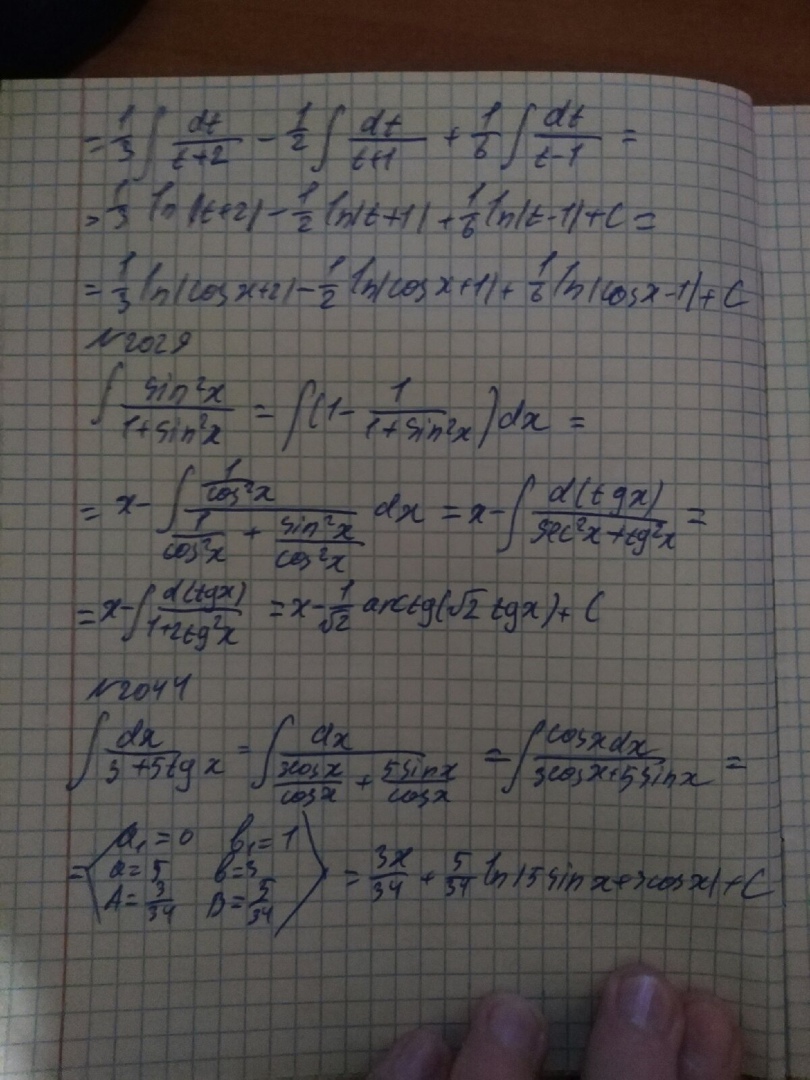 = 1/3 ∫ dt/(t+2) - 1/2 ∫ dt/(t+1) + 1/6 ∫ dt/(t-1) =
= 1/3 ln|t+2| - 1/2 ln|t+1| + 1/6 ln|t-1| + C =
= 1/3 ln|cos x+2| - 1/2 ln|cos x+1| + 1/6 ln|cos x-1| + C
N2029
∫ sin²x/(1+sin²x) = ∫(1 - 1/(1+sin²x))dx =
= x - ∫ (1/cos²x)/(1/cos²x + sin²x/cos²x) dx = x - ∫ d(tg x)/(sec²x+tg²x) =
= x - ∫ d(tgx)/(1+2tg²x) = x - 1/√2 arctg(√2 tgx) + C
N2044
∫ dx/(3+5tg x) = ∫ dx/(3cosx/cosx + 5sinx/cosx) = ∫ cosxdx/(3cosx+5sinx) =
= ⟨ a₁=0 b₁=1
a=5 b=3
A=3/34 B=5/34 ⟩ = 3x/34 + 5/34 ln|5sin x+3cosx| + C